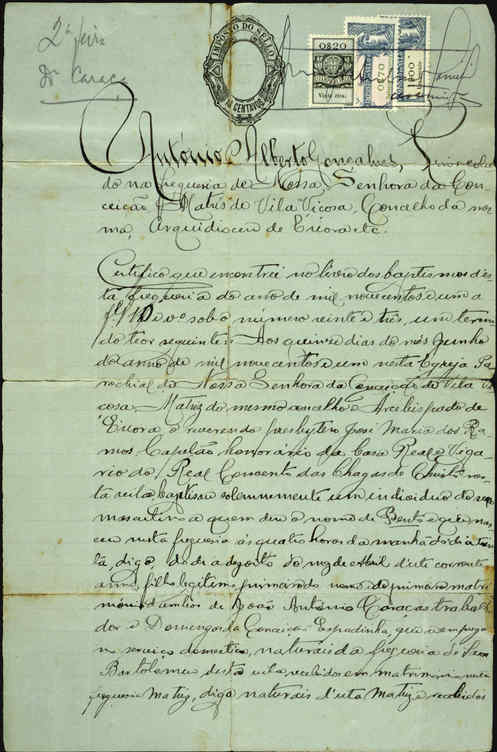 2ª feira
Dr Caraça
IMPOSTO DO SELLO
10 CENTAVOS
0$20
0$70
1$00
António Alberto Gonçalves, Prior colla
do na freguesia de Nossa Senhora da Con
ceição Matriz de Vila Viçosa, Concelho da mes
ma, Arquidiocese de Evora etc.
Certifico que encontrei no livro dos baptismos d'es
ta freguesia do ano de mil novecentos e um a
fls 10 e vº sob o número vinte e três, um termo
do teor seguinte: Aos quinze dias do mês Junho
do anno de mil novecentos e um nesta Egreja Pa
rochial de Nossa Senhora da Conceição de Vila Vi
cosa, Matriz do mesmo concelho e Arcebispado de
Evora o reverendo presbytero José Maria dos Ra
mos Capelão honorário da Casa Real e Viga
rio do Real Convento das Chagas de Christo nes
ta vila baptisou solemnemente um individuo do sexo
masculino a quem deu o nome de Bento e que nas
ceu nesta freguesia ás quatro horas da manhã do dia trin
ta, digo do dia dezoito do mez de Abril d'este corrente
anno, filho legitimo primeiro do nome do primeiro matri
monio d'ambos de João António Caraças trabalha
dor e Domingas da Conceição Espadinha, que se emprega
no serviço domestico, naturaes da freguesia de San
Bartolomeu desta vila recebidos em matrimonio nesta
freguesia Matriz, digo naturais d'esta Matriz e recebidos